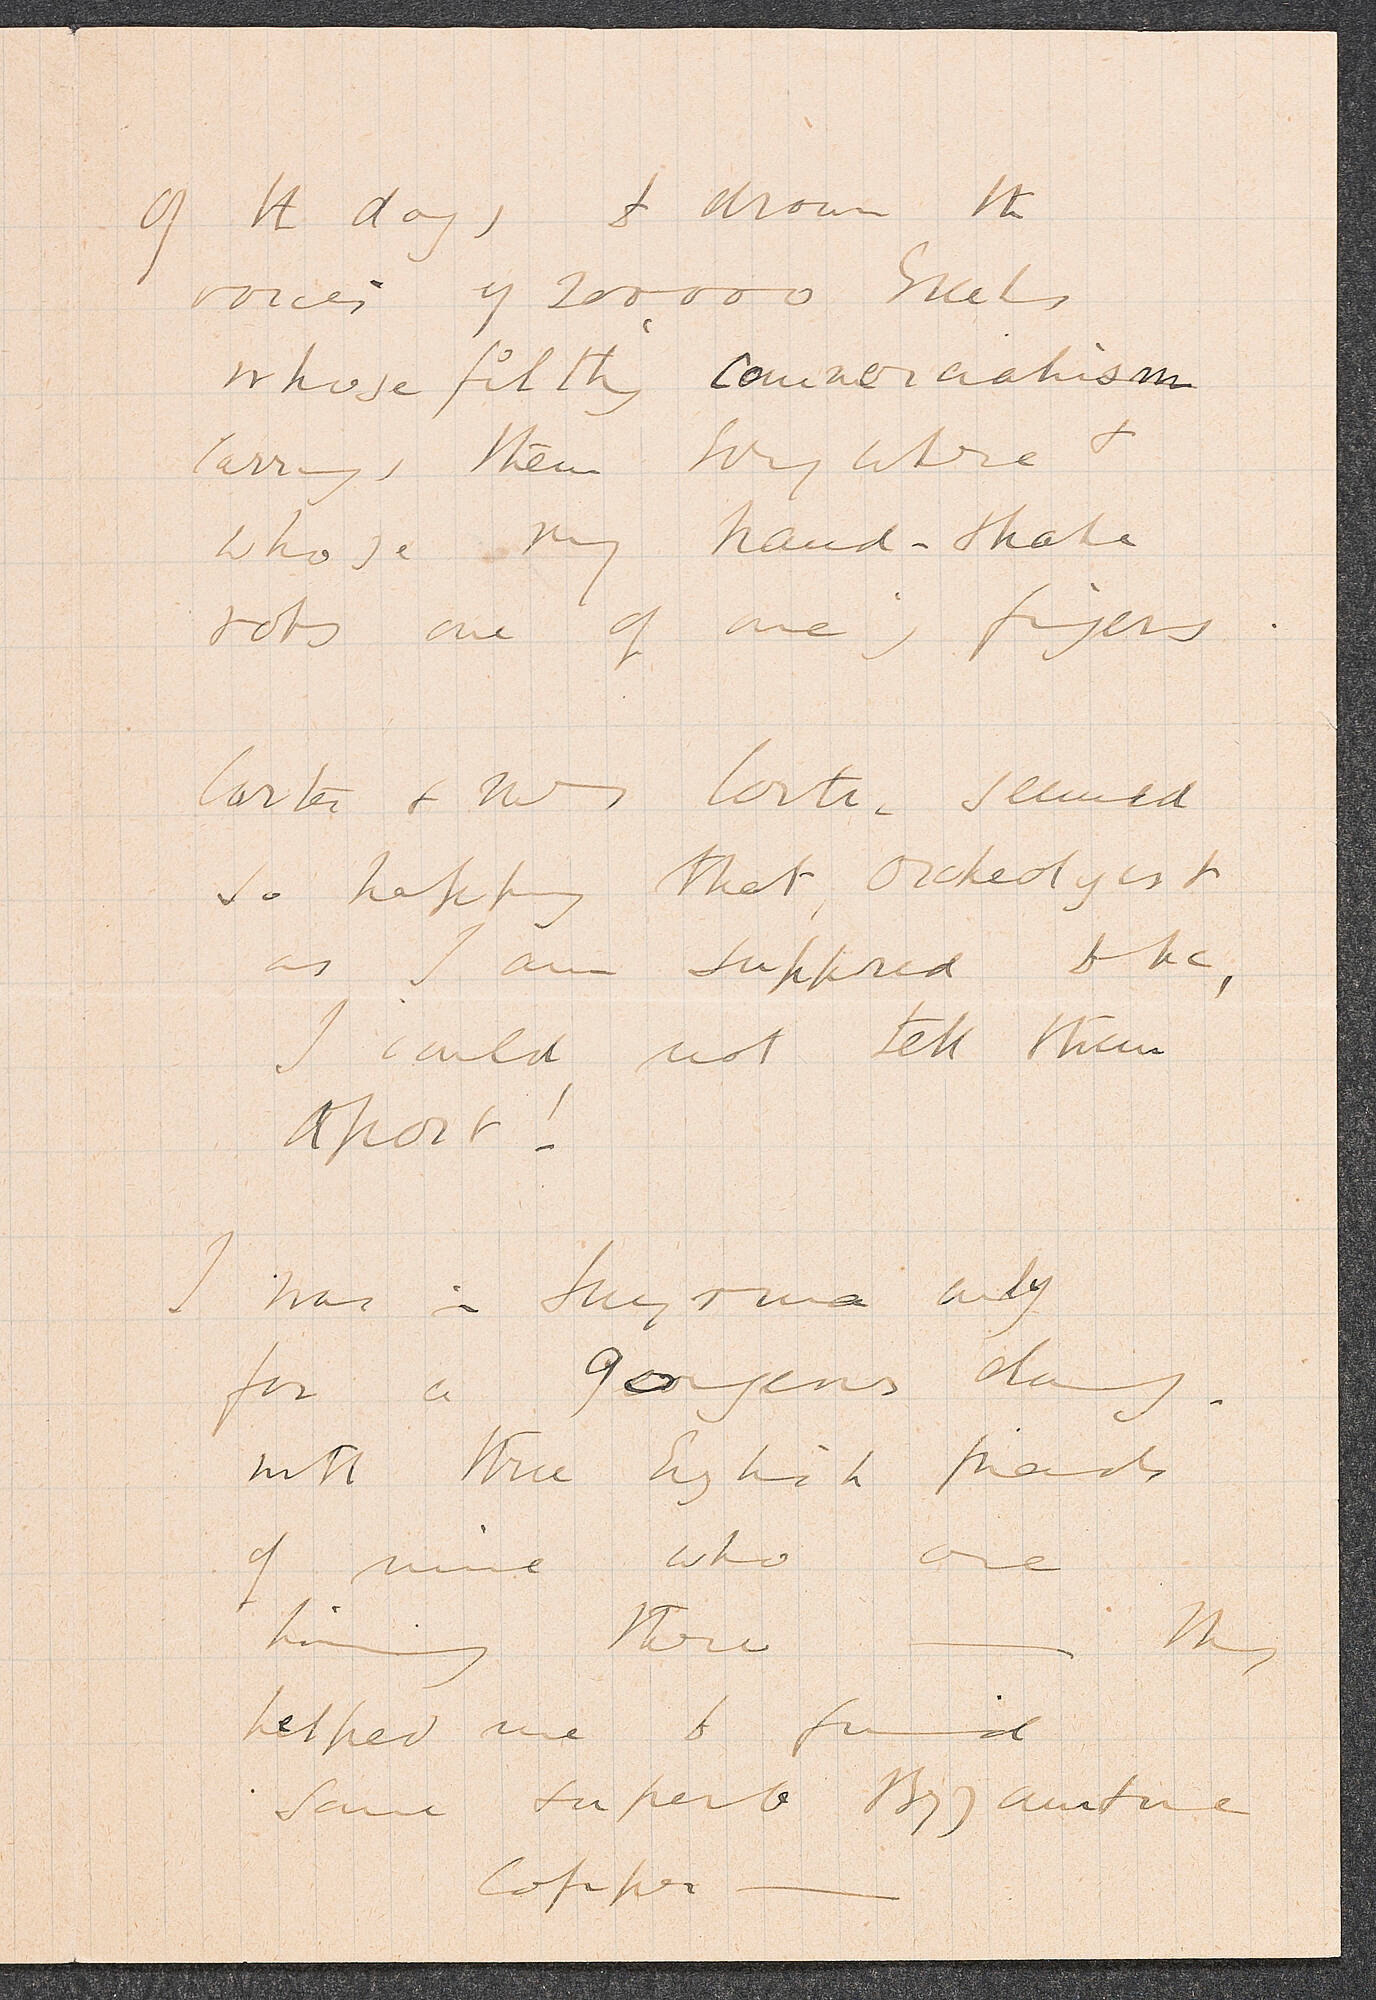 of the days & drown the
voices of 200,000 Greeks
whose filthy commercialism
carrys them everywhere &
whose my hand-shake
robs one of one's fingers.
Carter & Mrs Carter seemed
so happy that, archeologist
as I am supposed to be,
I could not tell them
apart!
I was in Smyrna only
for a gorgeous day.
with three English friends
of mine who are
living there — They
helped me to find
some superb Byzantine
Copper —